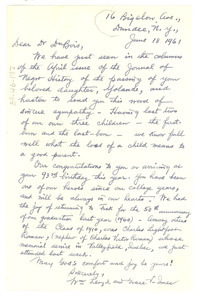 16 Bigelow Ave.,
Dundee, N.Y.,
June 18, 1961
Dear Dr DuBois,
We have just seen in the columns
of the April issue of the Journal of
Negro History of the passing of your
beloved daughter, Yolande, and
hasten to send you this word of
sincere sympathy. Having lost two
of our own three children – the first-
born and the last-born – we know full
well what the loss of a child means to
a good parent.
Our congratulations to you on arriving at
your 93rd birthday this year. You have been
one of our heroes since our college years,
and will be always in our hearts. We had
the joy of returning to Fisk for the 50th anniversary
of our graduation last year (1960) –
of the Class of 1910, was Charles Lightfoot
Roman, nephew of Charles Victor Roman, whose
memorial service in Valleyfield, Quebec, we just
attended last week.
May God's comfort and joy be yours!
Sincerely,
Wm Lloyd and Grace Imes